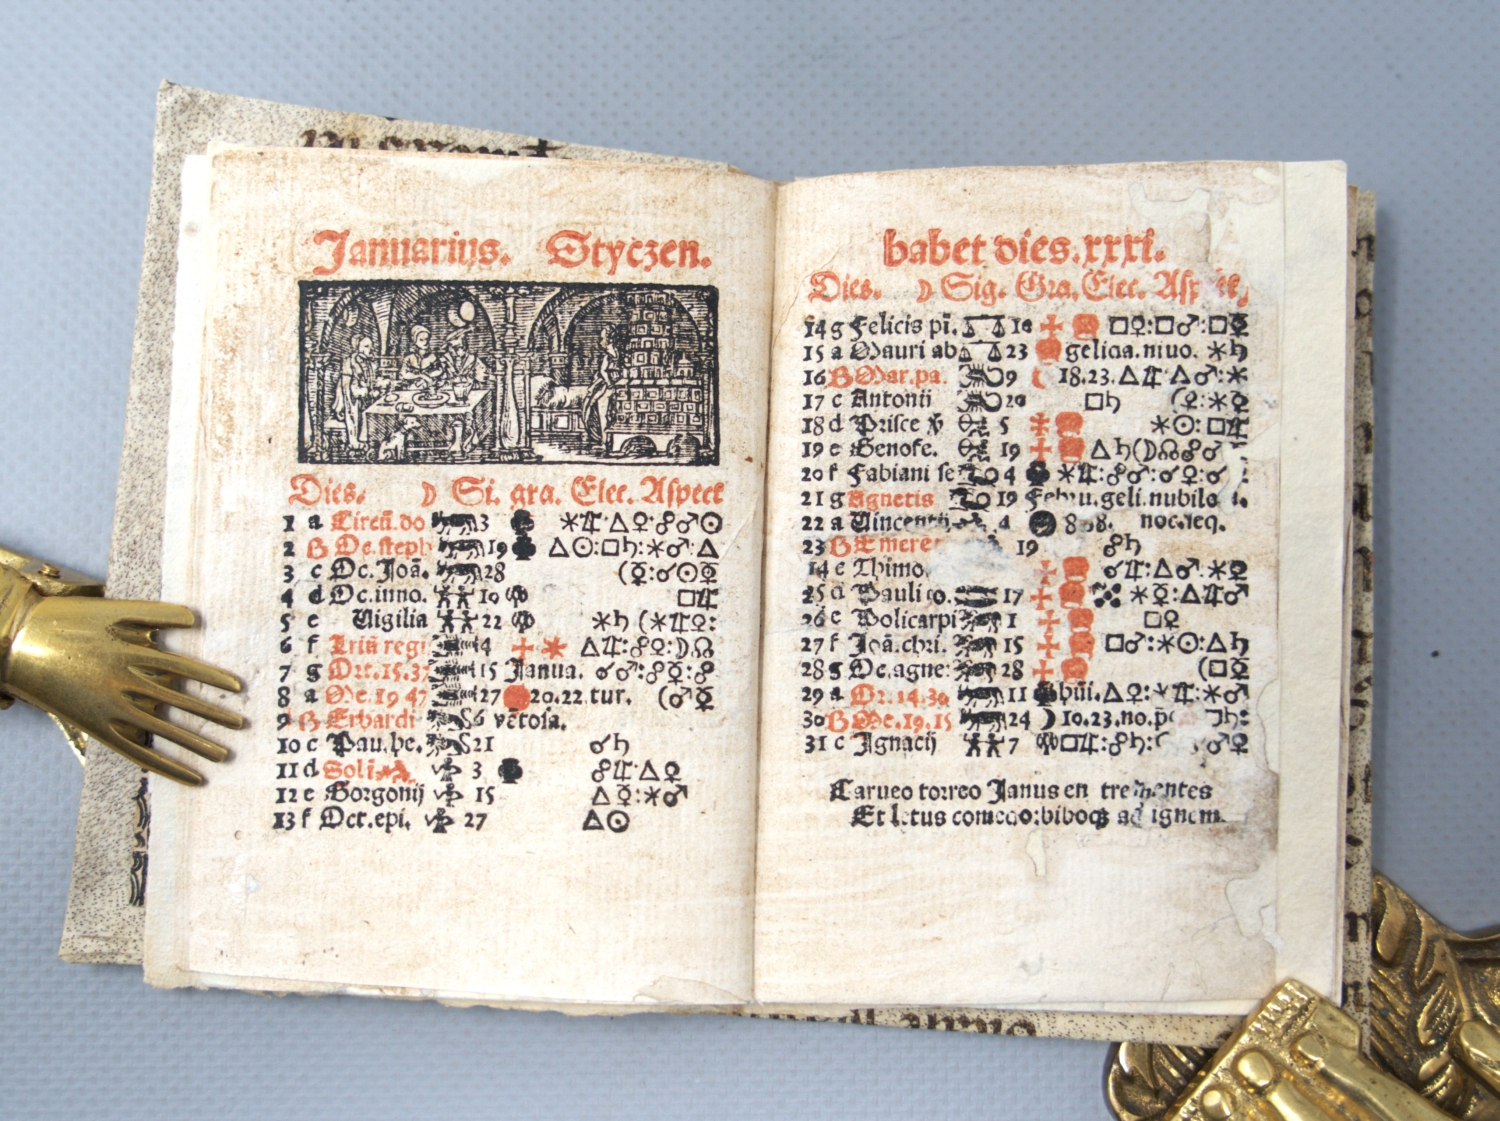 Januarius. Styczen.
Dies. ☽ Si. gra. Elec. Aspect
1 a Circũ.do 3 ⚹♃△♀☍♂☉
2 B Oc.steph 19 △☉:□♄:⚹♂:△
3 c Oc.Joã. 28 (☿:☌☉♀
4 d Oc.inno. 10 □♃
5 e Vigilia 22 ⚹♄ (⚹♃♀:
6 f Triũ regũ 4 △♃:☍♀:☽☊
7 g Ort.15.37 15 Janua. ☌♂:☍☿:☍
8 a Oc.19 47 27 20.22.tur. (♂☿
9 B Erhardi 6 vẽtosa.
10 c Pau.he. 21 ☌♄
11 d Soli 3 ☍♃△♀
12 e Gorgonij 15 △☿:⚹♂
13 f Oct.epi. 27 △☉
habet dies.xxxi.
Dies. ☽ Sig. Gra. Elec. Aspect
14 g Felicis pĩ. 10 □♀:□♂:□☿
15 a Mauri ab 23 gelida.nivo. ⚹♄
16 B Mar.pa. 9 18.23.△♃ △♂:⚹
17 c Antonij 20 □♄ (♀:⚹☿
18 d Prisce 5 ⚹☉:□♃
19 e Genofe. 19 △♄(☽☊☍♂
20 f Fabiani se 4 ⚹♃:☍♂:☌♀:☌
21 g Agnetis 19 geli.nubilo
22 a Vincentij 4 noc.seq.
23 B Emerẽ 19 ☍♄
14 e Thimo. ☌♃:△♂.⚹☿
25 d Pauli co. 17 ⚹☿:△♃♂
26 e Policarpi 1 □♀
27 f Joã.chri. 15 □♂:⚹☉:△♄
28 g Oc.agne: 28 (□☿
29 a Or.14.30 11 hũi.△♀:⚹♃:⚹♂
30 B Oc.19.15 24 ☽ 10.23.no.
31 c Ignacij 7 □♃:☍♄: ♂☿
Carueo torreo Janus en trementes
Et letus comedo:biboq; ad ignem.